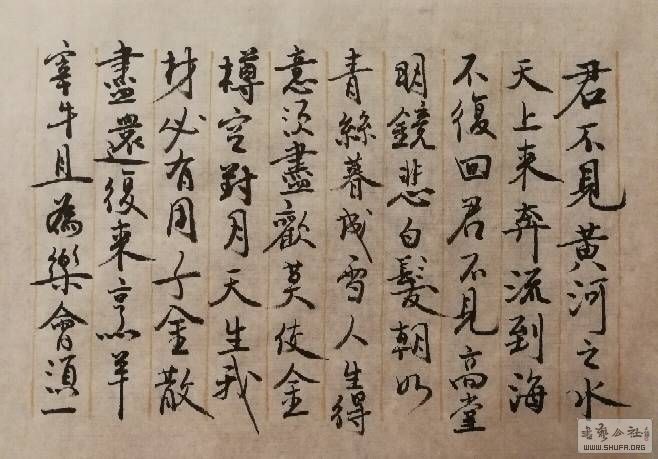 君不見黃河之水
天上来奔流到海
不復回君不見高堂
明鏡悲白髮朝如
青絲暮成雪人生得
意須盡歡莫使金
樽空對月天生我
材必有用千金散
盡還復来烹羊
宰牛且為樂會須一
書艺公社
WWW.SHUFA.ORG